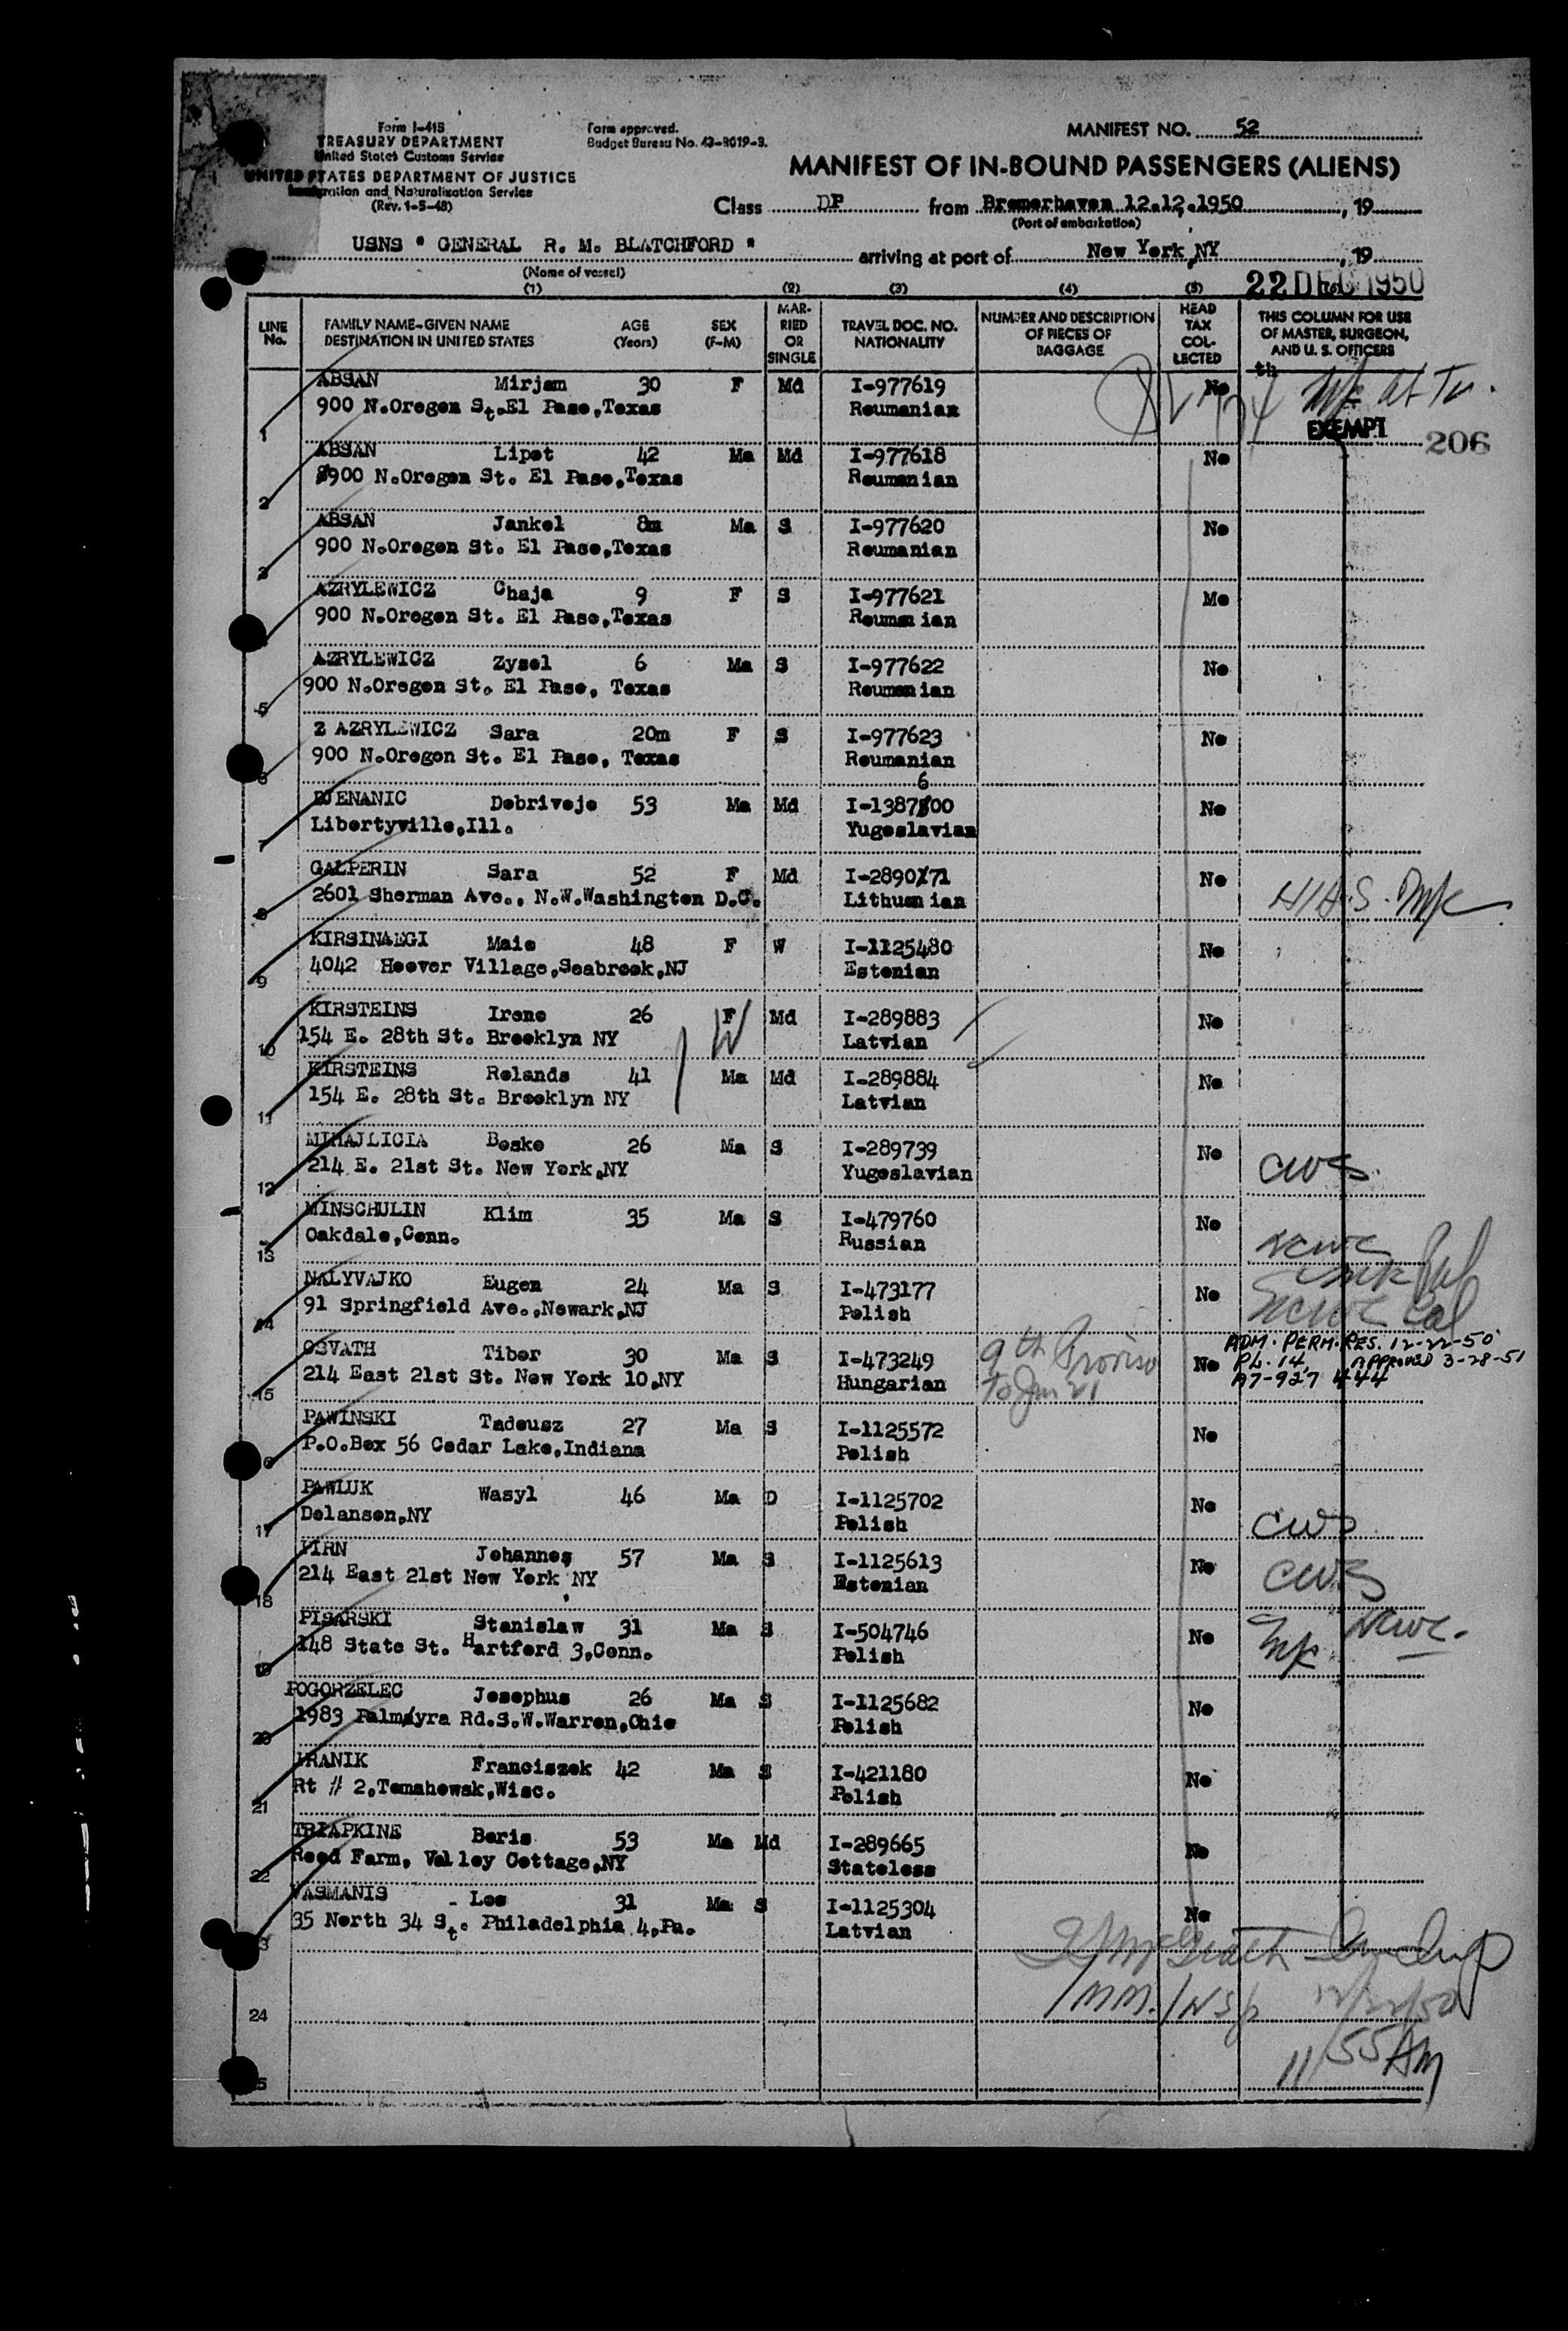 Form I-418
TREASURY DEPARTMENT
United States Customs Service
UNITED STATES DEPARTMENT OF JUSTICE
Immigration and Naturalization Service
(Rev. 1-5-48)
Form approved.
Budget Bureau No. 43-R019-3.
MANIFEST NO. 52
MANIFEST OF IN-BOUND PASSENGERS (ALIENS)
Class DP from Bremerhaven 12.12.1950, 19
(Port of embarkation)
USNS " GENERAL R. M. BLATCHFORD " arriving at port of New York,NY, 19
(Name of vessel)
22 DEC 1950
(1) (2) (3) (4) (5)
LINE No.
FAMILY NAME-GIVEN NAME DESTINATION IN UNITED STATES
AGE (Years)
SEX (F-M)
MAR-RIED OR SINGLE
TRAVEL DOC. NO. NATIONALITY
NUMBER AND DESCRIPTION OF PIECES OF BAGGAGE
HEAD TAX COL-LECTED
THIS COLUMN FOR USE OF MASTER, SURGEON, AND U. S. OFFICERS
1 ABSAN Mirjam 30 F Md I-977619 No
900 N.Oregon St.El Paso,Texas Roumanian
EXEMPT 206
2 ABSAN Lipot 42 Ma Md I-977618 No
900 N.Oregon St. El Paso,Texas Roumanian
3 ABSAN Jankel 8m Ma S I-977620 No
900 N.Oregon St. El Paso,Texas Roumanian
AZRYLEWICZ Chaja 9 F S I-977621 Mo
900 N.Oregon St. El Paso,Texas Roumanian
5 AZRYLEWICZ Zysel 6 Ma S I-977622 No
900 N.Oregon St. El Paso, Texas Roumanian
6 Z AZRYLEWICZ Sara 20m F S I-977623 No
900 N.Oregon St. El Paso, Texas Roumanian
7 BJENANIC Dobrivoje 53 Ma Md I-1387600 No
Libertyville,Ill. Yugoslavian
8 GALPERIN Sara 52 F Md I-2890171 No
2601 Sherman Ave., N.W.Washington D.C. Lithuanian
9 KIRSINAEGI Maie 48 F W I-1125480 No
4042 Hoover Village,Seabrook,NJ Estonian
10 KIRSTEINS Irene 26 F Md I-289883 No
154 E. 28th St. Brooklyn NY Latvian
11 KIRSTEINS Rolands 41 Ma Md I-289884 No
154 E. 28th St. Brooklyn NY Latvian
12 MIHAJLICIA Bosko 26 Ma S I-289739 No CWS
214 E. 21st St. New York,NY Yugoslavian
13 MINSCHULIN Klim 35 Ma S I-479760 No NCWC
Oakdale,Conn. Russian
14 NALYVAJKO Eugen 24 Ma S I-473177 No NCWC
91 Springfield Ave.,Newark,NJ Polish
15 OSVATH Tibor 30 Ma S I-473249 9th Proviso No ADM. PERM. RES. 12-22-50
214 East 21st St. New York 10,NY Hungarian To Jan 21 PL. 14, APPROVED 3-28-51
A7-927 444
PAWINSKI Tadeusz 27 Ma S I-1125572 No
P.O.Box 56 Cedar Lake,Indiana Polish
17 PAWLUK Wasyl 46 Ma D I-1125702 No CWS
Delanson,NY Polish
18 PIRN Johannes 57 Ma S I-1125613 No CWS
214 East 21st New York,NY Estonian
19 PISARSKI Stanislaw 31 Ma S I-504746 No NCWC.
148 State St. Hartford 3,Conn. Polish
20 POGORZELEC Josephus 26 Ma S I-1125682 No
1983 Palmyra Rd.S.W.Warren,Ohio Polish
21 PRANIK Franciszek 42 Ma S I-421180 No
Rt # 2,Tomahowak,Wisc. Polish
22 TRIAPKINE Boris 53 Ma Md I-289665 No
Reed Farm, Valley Cottage,NY Stateless
3 VASMANIS Leo 31 Ma S I-1125304 No
35 North 34 St. Philadelphia 4,Pa. Latvian
24
IMM. INSP 12/22/50
11/55 AM